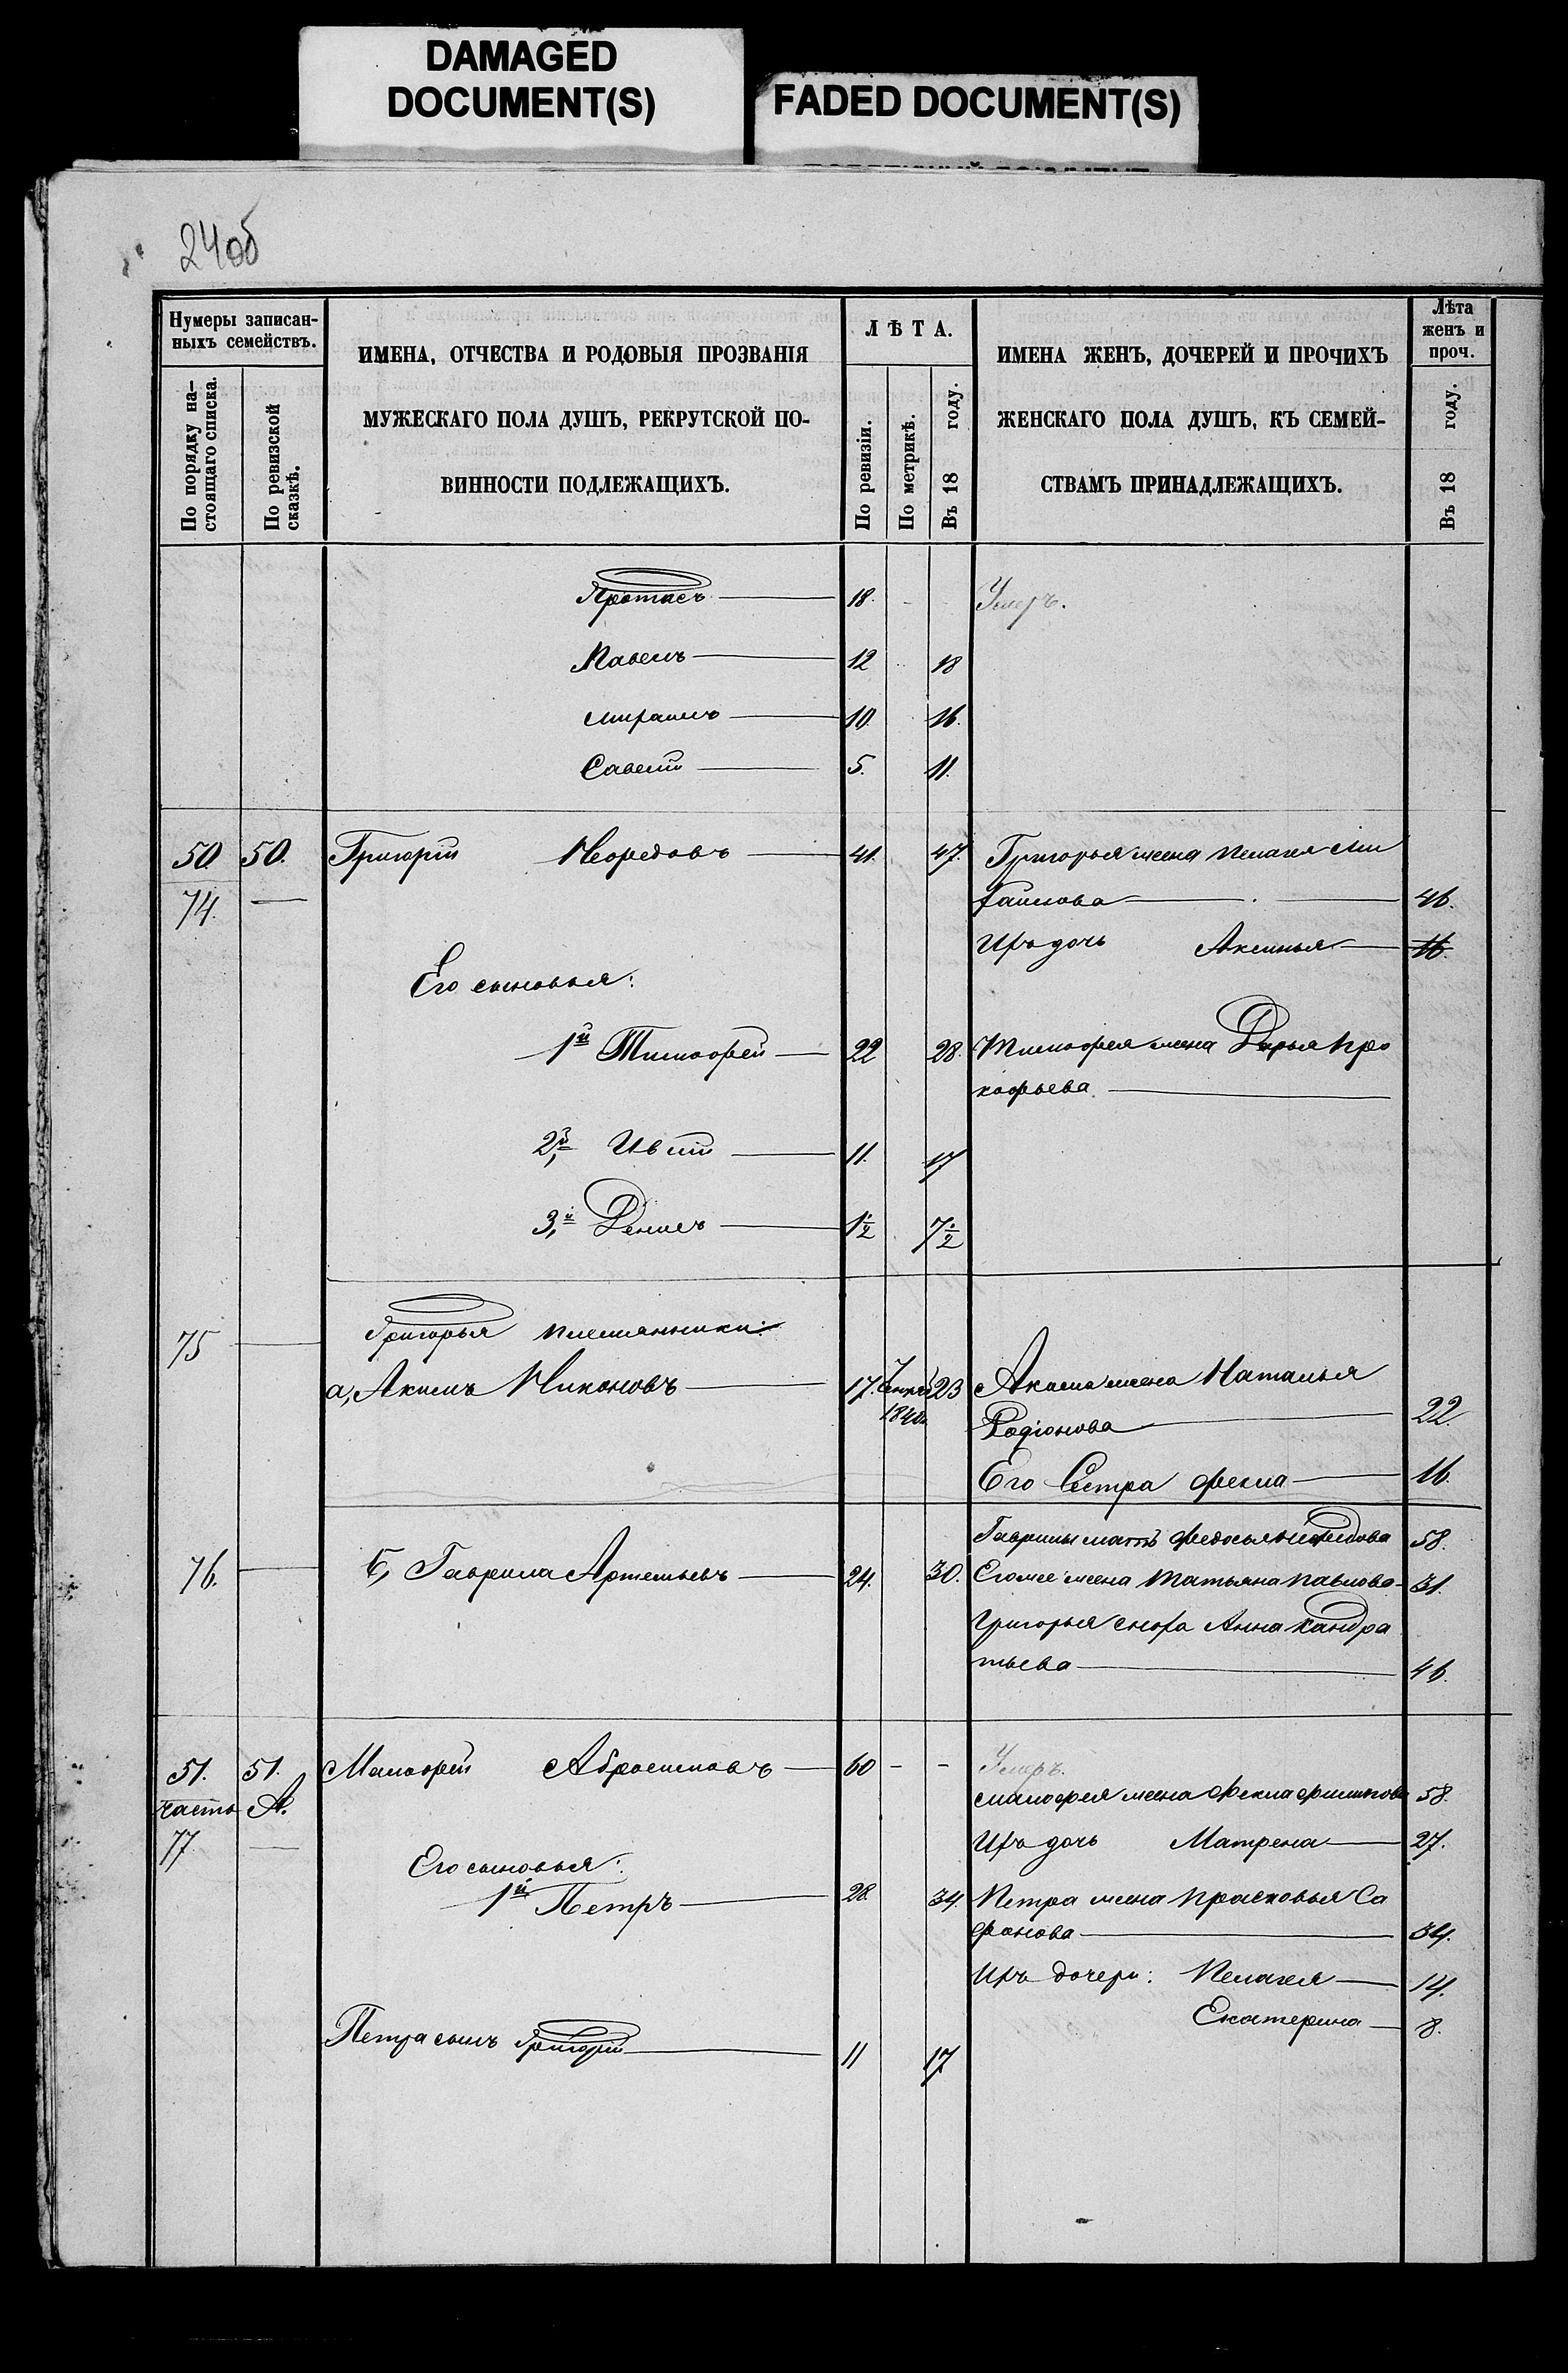 DAMAGED
DOCUMENT(S)
FADED DOCUMENT(S)
24об
Нумеры записан-
ныхъ семействъ.
По порядку на-
стоящаго списка.
По ревизской
сказкѣ.
ИМЕНА, ОТЧЕСТВА И РОДОВЫЯ ПРОЗВАНІЯ
МУЖЕСКАГО ПОЛА ДУШЪ, РЕКРУТСКОЙ ПО-
ВИННОСТИ ПОДЛЕЖАЩИХЪ.
ЛѢТА.
По ревизіи.
По метрикѣ.
Въ 18 году.
ИМЕНА ЖЕНЪ, ДОЧЕРЕЙ И ПРОЧИХЪ
ЖЕНСКАГО ПОЛА ДУШЪ, КЪ СЕМЕЙ-
СТВАМЪ ПРИНАДЛЕЖАЩИХЪ.
Лѣта
женъ и
проч.
Въ 18 году.
Протасъ 18. - Умеръ.
Павелъ 12 18
10. 16.
Савелій 5. 11.
50. 50. Григорій 41. 47. Григорья жена Пелагея Ми
74. — хайлова 46.
Ихъ дочь Аксинья 16.
Его сыновья:
1й Тимофей 22 28. Тимофея жена Дарья Про
кофьева
2й 11. 17
3й Денисъ 1½ 7½
75 — Григорья племянники:
а, Акимъ Никоновъ 17. 1840 23 Акима жена Наталья
Родіонова 22.
Его Сестра Фекла 16.
Гаврилы мать Федосья 58.
76. — б, Гаврила Артемьевъ 24. 30. Его же жена Татьяна Павлова 31.
Григорья сноха Анна Кандра
тьева 46.
51. 51. Малофей Абросимовъ 60 - - Умеръ.
часть А. Малофея жена Фекла Филипова 58.
77 — Ихъ дочь Матрена 27.
Его сыновья:
1й Петръ 28. 34. Петра жена Прасковья Са
фонова 34.
Ихъ дочери: Пелагея 14.
Екатерина 8.
Петра сынъ Григорій 11 17